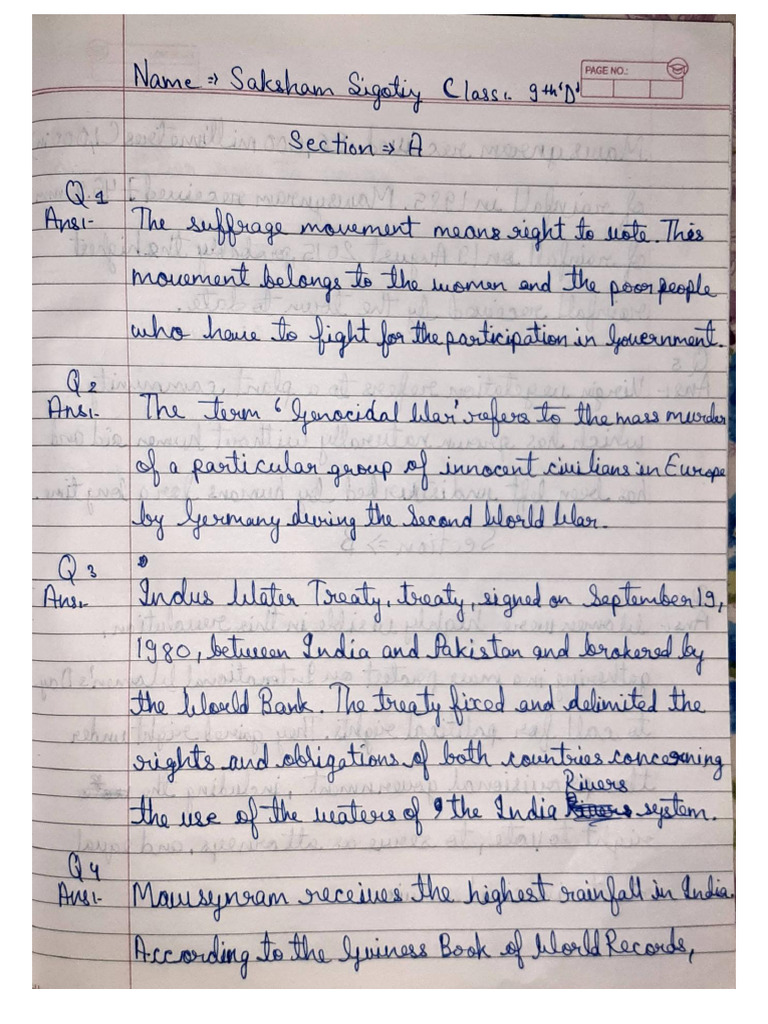 Name ⇒ Saksham Sigotiy Class:- 9th 'D'
PAGE NO.:
Section ⇒ A
Q.1
Ans:- The suffrage movement means right to vote. This
movement belongs to the women and the poor people
who have to fight for the participation in Government.
Q 2
Ans:- The term 'Genocidal War' refers to the mass murder
of a particular group of innocent civilians in Europe
by Germany during the Second World War.
Q 3
Ans:- Indus Water Treaty, treaty, signed on September 19,
1980, between India and Pakistan and brokered by
the World Bank. The treaty fixed and delimited the
rights and obligations of both countries concerning
the use of the waters of the India Rivers system.
Q 4
Ans:- Mawsynram receives the highest rainfall in India.
According to the Guiness Book of World Records,